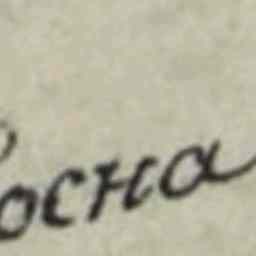 осна